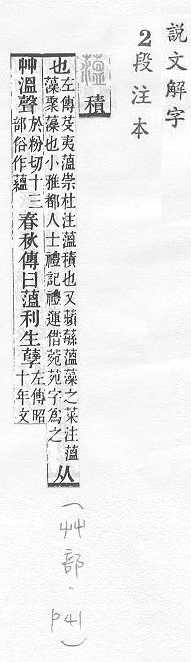 說文解字
2 段注本
薀 積
也 左傳芟夷薀崇杜注薀積也又蘋蘩薀藻之菜注薀
藻聚藻也小雅都人士禮記禮運借菀苑字爲之 从
艸溫聲 於粉切十三
部俗作蘊 春秋傳曰薀利生孼 左傳昭
十年文
(艸部.P41)